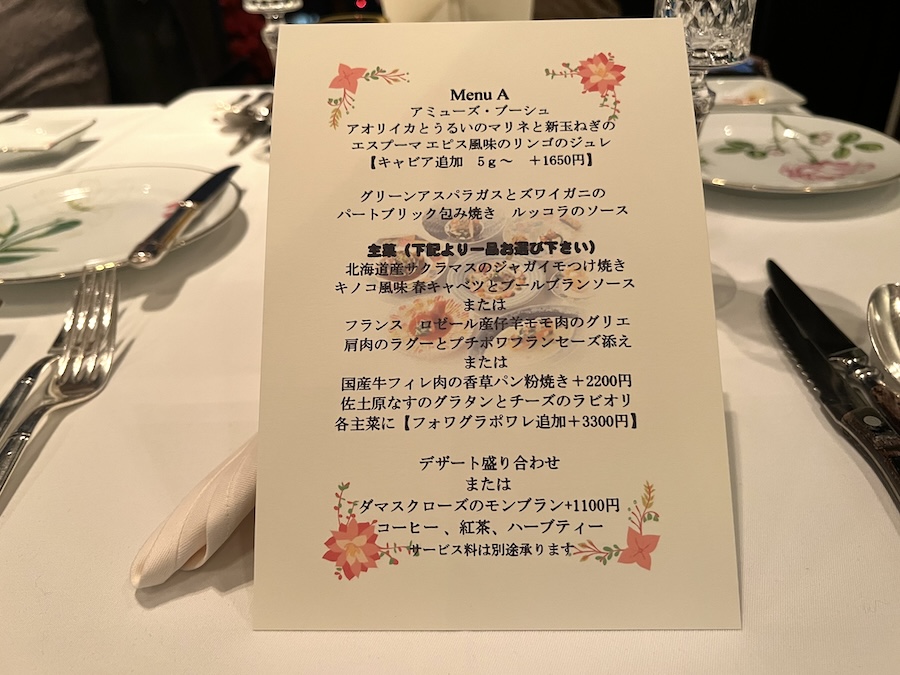 Menu A
アミューズ・ブーシュ
アオリイカとうるいのマリネと新玉ねぎの
エスプーマ エピス風味のリンゴのジュレ
【キャビア追加　5ｇ～　＋1650円】
グリーンアスパラガスとズワイガニの
パートブリック包み焼き　ルッコラのソース
主菜（下記より一品お選び下さい）
北海道産サクラマスのジャガイモつけ焼き
キノコ風味 春キャベツとブールブランソース
または
フランス　ロゼール産仔羊モモ肉のグリエ
肩肉のラグーとプチポワフランセーズ添え
または
国産牛フィレ肉の香草パン粉焼き＋2200円
佐土原なすのグラタンとチーズのラビオリ
各主菜に【フォワグラポワレ追加＋3300円】
デザート盛り合わせ
または
ダマスクローズのモンブラン+1100円
コーヒー 、紅茶、ハーブティー
サービス料は別途承ります